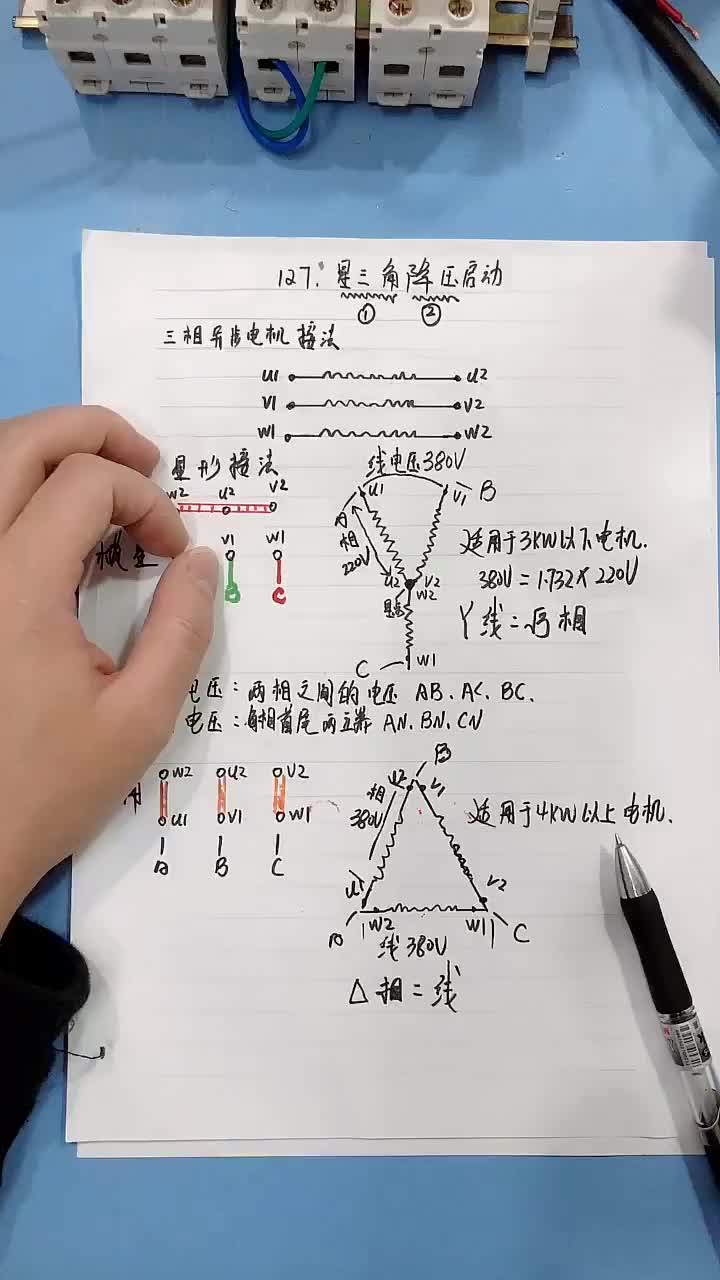 127. 星三角降压启动
① ②
三相异步电机接法
U1 U2
V1 V2
W1 W2
星形接法
线电压380V
W2 U2 V2
U1 V1 B
V1 W1
A
相
220V
适用于3KW以下电机.
380V=1.732×220V
U2 V2
W2
B C
Y线=√3相
C W1
电压:两相之间的电压 AB、AC、BC、
电压:每相首尾两立端 AN、BN、CN
B
W2 U2 V2
U2 V1
相
380V
适用于4KW以上电机.
U1 V1 W1
A B C
U1 V2
A W2 W1 C
线380V
△相=线